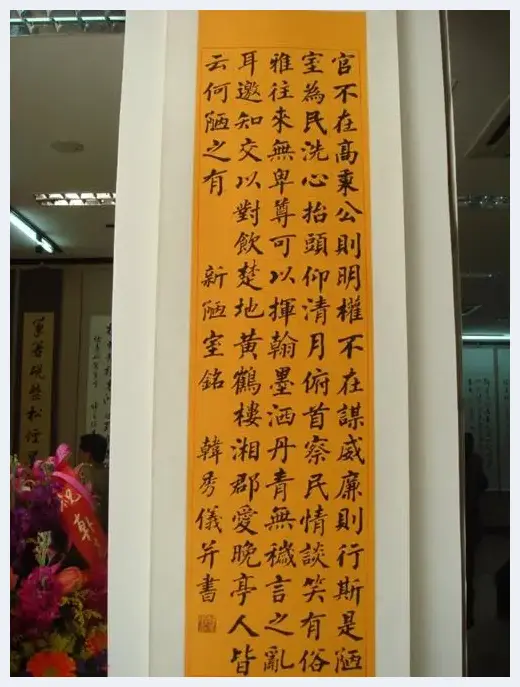 官不在高秉公則明權不在謀威廉則行斯是陋
室為民洗心抬頭仰清月俯首察民情談笑有俗
雅往來無卑尊可以揮翰墨洒丹青無穢言之亂
耳邀知交以對飲楚地黃鶴樓湘郡愛晚亭人皆
云何陋之有 新陋室銘 韓秀儀并書
祝